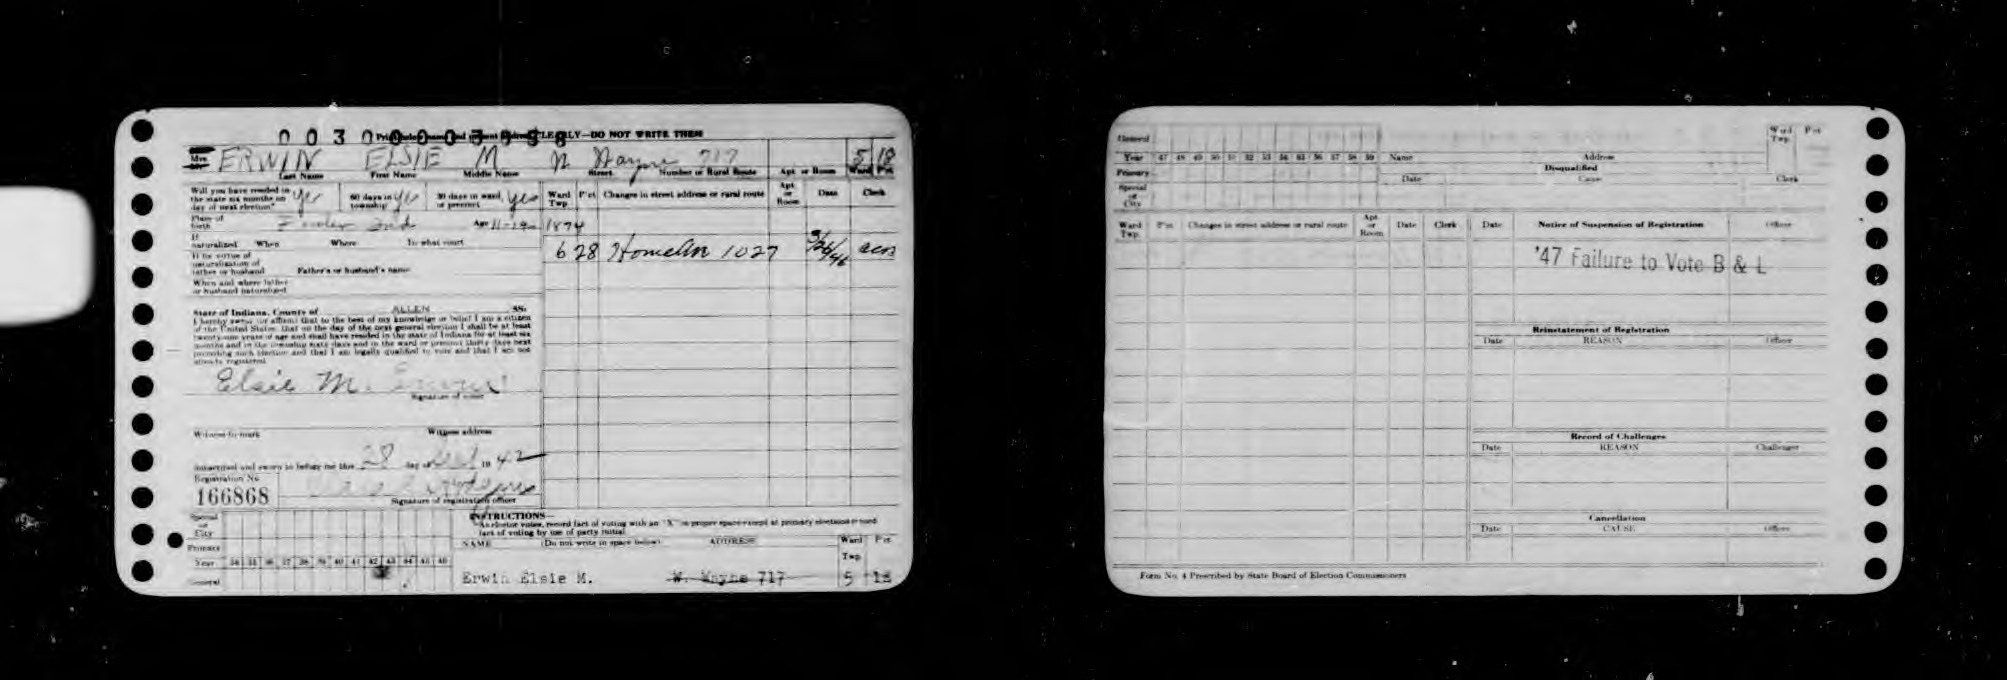 0030
CLEARLY—DO NOT WRITE THEM
Mrs. ERWIN ELSIE M Wayne 717 5 18
Last Name First Name Middle Name Street Number or Rural Route Apt or Room Ward Pct
Will you have resided in the state six months on day of next election? Yes 60 days in township Yes 30 days in ward or precinct Yes
Ward Twp. P'ct Changes in street address or rural route Apt or Room Date Clerk
Place of birth Fowler Ind Age 11-19-1874
If naturalized When Where In what court
If by virtue of naturalization of father or husband Father's or husband's name
When and where father or husband naturalized
6 28 Homeln 1027
State of Indiana, County of ALLEN SS:
I hereby swear (or affirm) that to the best of my knowledge or belief I am a citizen
of the United States, that on the day of the next general election I shall be at least
twenty-one years of age and shall have resided in the state of Indiana for at least six
months and in the township sixty days and in the ward or precinct thirty days next
preceding such election and that I am legally qualified to vote and that I am not
already registered.
Elsie M. Erwin
Signature of voter
Witness to mark Witness address
Subscribed and sworn to before me this 28 day of 19 42
Registration No.
166868
Signature of registration officer
INSTRUCTIONS—
As elector votes, record fact of voting with an "X" in proper space except at primary elections record
fact of voting by use of party initial
Special or City
Primary
Year 34 35 36 37 38 39 40 41 42 43 44 45 46
General
NAME (Do not write in space below) ADDRESS Ward Twp. P'ct
Erwin Elsie M. W. Wayne 717 5 18
General
Year 47 48 49 50 51 52 53 54 55 56 57 58 59
Primary
Special or City
Name Address Ward Twp. P'ct
Disqualified
Date Cause Clerk
Ward Twp. P'ct Changes in street address or rural route Apt or Room Date Clerk
Date Notice of Suspension of Registration Officer
'47 Failure to Vote B & L
Reinstatement of Registration
Date REASON Officer
Record of Challenges
Date REASON Challenger
Cancellation
Date CAUSE Officer
Form No. 4 Prescribed by State Board of Election Commissioners